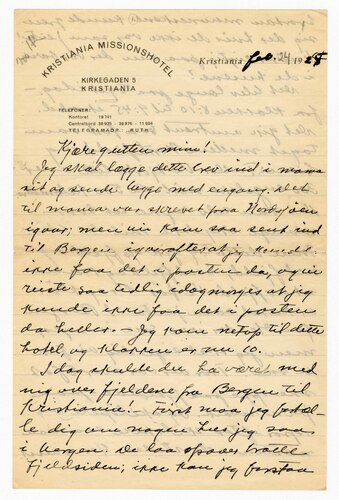 KRISTIANIA MISSIONSHOTEL
KIRKEGADEN 5
KRISTIANIA
TELEFONER:
Kontoret 19 741
Centralbord 38 925 - 38 976 - 11 694
TELEGRAMADR. „RUTH"
Kristiania feb. 24 19
Kjære gutten min!
Jeg skal lægge dette brev ind i mama
sit og sende begge med engang. Det
til mama var skrevet paa Nordsjøen
igaar; men vi kom saa sent ind
til Bergen igaaraftes at jeg kunde
ikke faa det i posten da, og vi
reiste saa tidlig idagmorges at jeg
kunde ikke faa det i posten
da heller. — Jeg kom netop til dette
hotel, og klokken er nu 10.
I dag skulde du ha været med
mig over fjeldene fra Bergen til
Kristiania. — Først maa jeg fortæl-
le dig om nogen hus jeg saa
i Bergen. De laa opover bratte
Fjeldsiden; ikke kan jeg forstaa